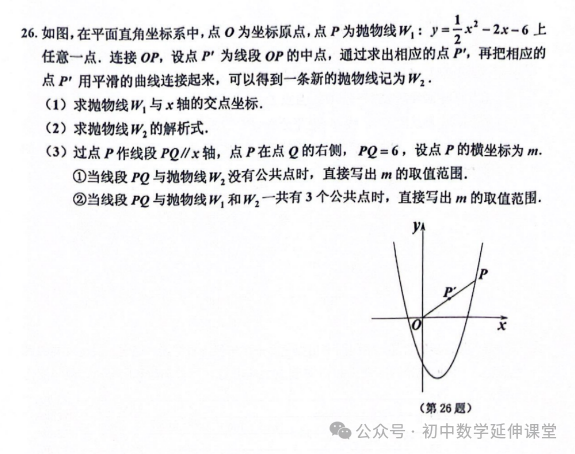 26. 如图,在平面直角坐标系中,点 O 为坐标原点,点 P 为抛物线W₁: y=\frac{1}{2}x²-2x-6 上
任意一点. 连接 OP, 设点 P′ 为线段 OP 的中点, 通过求出相应的点 P′, 再把相应的
点 P′ 用平滑的曲线连接起来, 可以得到一条新的抛物线记为 W₂.
(1) 求抛物线W₁与 x 轴的交点坐标.
(2) 求抛物线W₂的解析式.
(3) 过点 P 作线段 PQ∥x 轴, 点 P 在点 Q 的右侧, PQ=6, 设点 P 的横坐标为 m.
①当线段 PQ 与抛物线W₂ 没有公共点时, 直接写出 m 的取值范围.
②当线段 PQ 与抛物线W₁ 和W₂ 一共有 3 个公共点时, 直接写出 m 的取值范围.
y
P
P′
O
x
(第 26 题)
公众号·初中数学延伸课堂